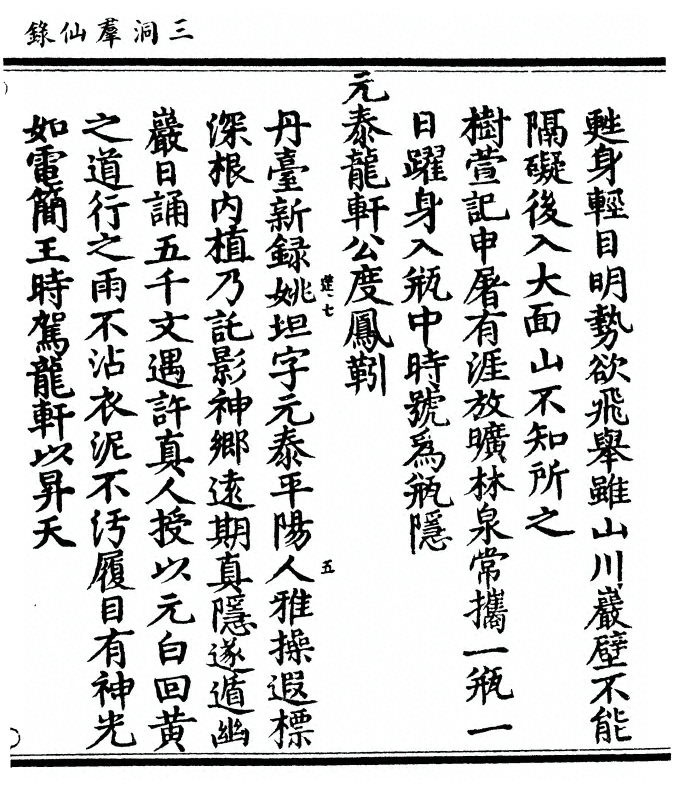 三洞羣仙錄
甦身輕目明勢欲飛舉雖山川巖壁不能
隔礙後入大面山不知所之
樹萱記申屠有涯放曠林泉常攜一瓶一
日躍身入瓶中時號爲瓶隱
元泰龍軒公度鳳靷
丹臺新録姚坦字元泰平陽人雅操遐標
深根內植乃託影神鄉遠期真隱遂遁幽
巖日誦五千文遇許真人授以元白回黃
之道行之雨不沾衣泥不汚履目有神光
如電簡王時駕龍軒以昇天
七
五